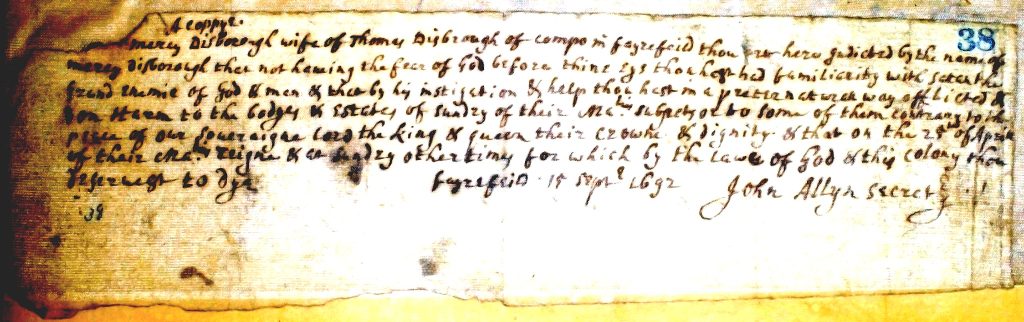 A coppye.
38
mercy Disborough wife of Thomas Disbrough of compo in fayrefeild thou art here Indicted by the name of
mercy disborough that not haueing the fear of God before thine Eys thou hast had familiarity with satan the
grand Enemie of God & man & that by his instigation & help thou hast in a preternaturall way afflicted &
don Harm to the bodyes & Estates of sundry of their Matis subjects or to some of them contrary to the
peace of our Soueraigne lord the king & queen their crowne & dignity & that on the 25t of Aprill
of their Matis reigne & at sundry other times for which by the lawes of God & this colony thou
deseruest to dye
fayrefeild 15 Septr 1692 John Allyn secrety
38